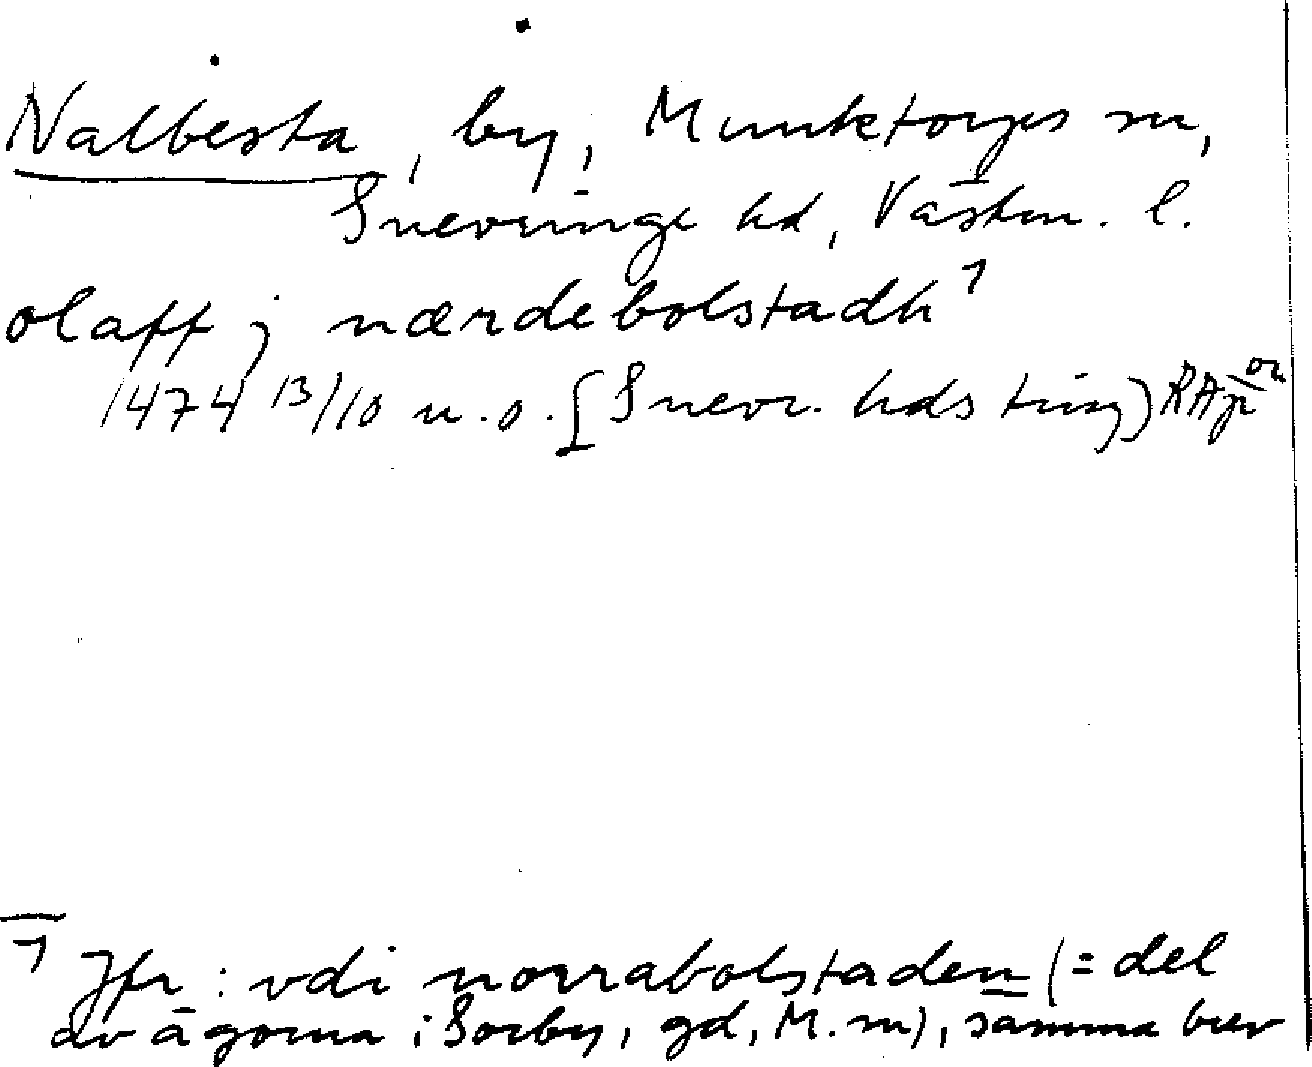 Nalbesta, by, Munktorps sn,
Snevringe hd, Västm. l.
olaff j nærdebolstadh 1
1474 13/10 u.o. [Snevr. hds ting) RAp or
1 Jfr: vdi norrabolstaden (= del
av ägorna i Sorby, gd, M. sn), samma brev